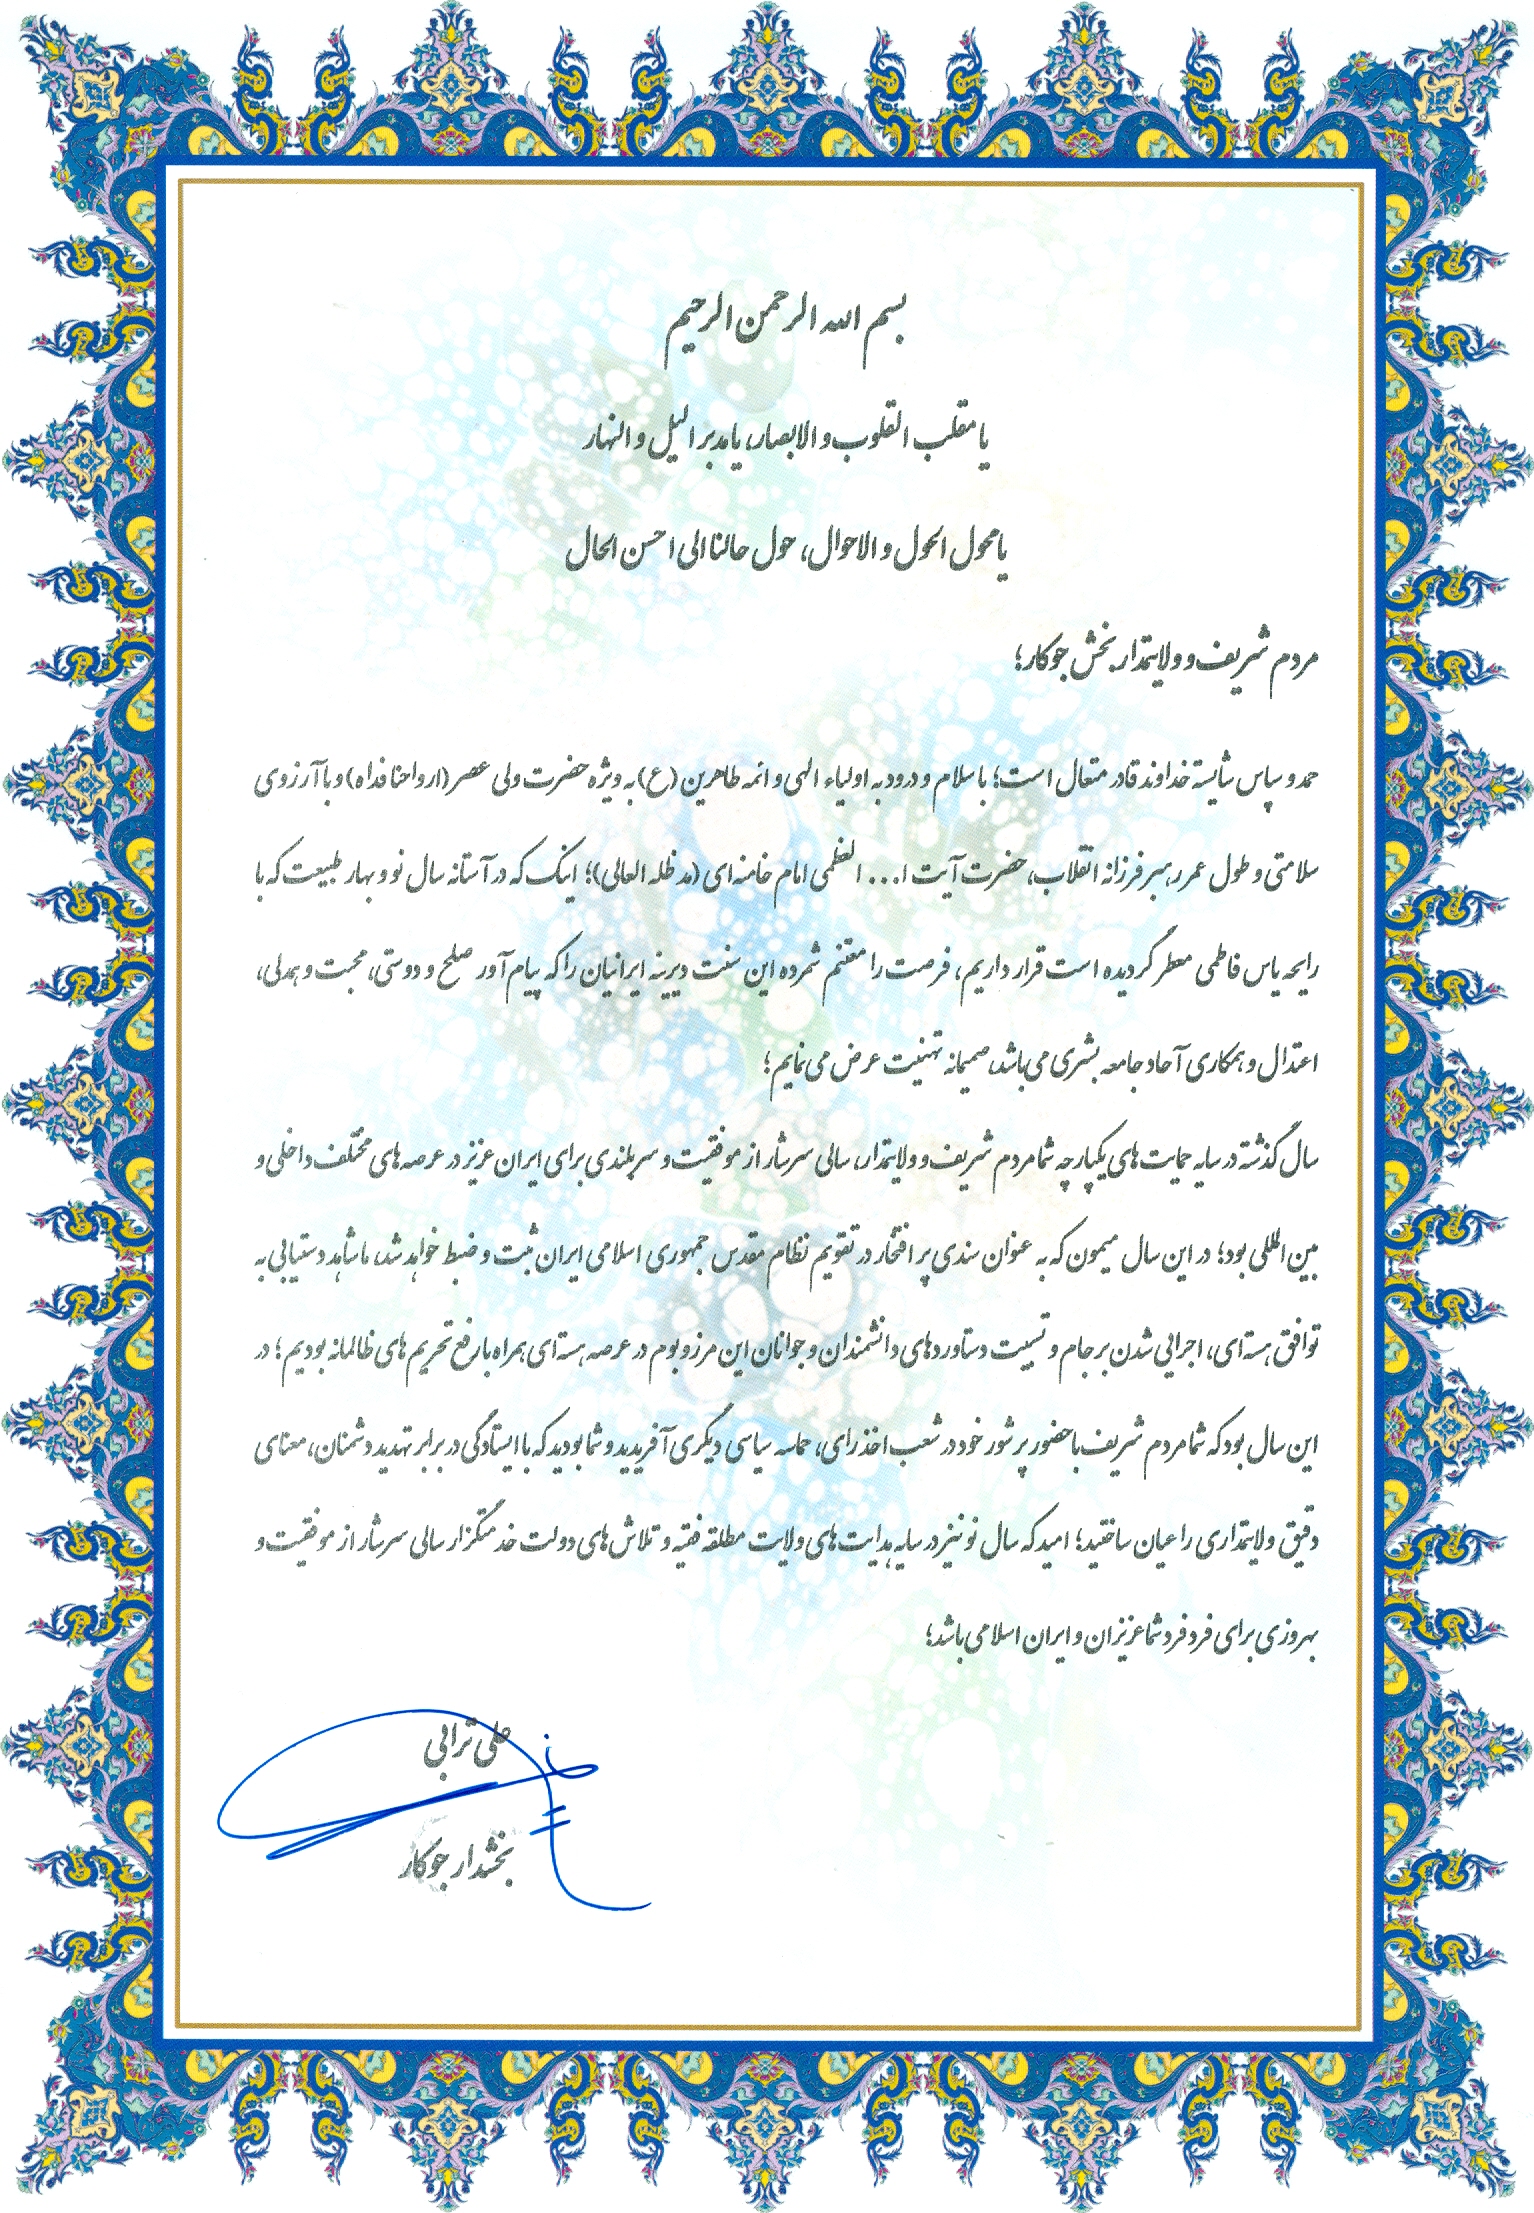 بسم الله الرحمن الرحیم
یا مقلب القلوب و الابصار، یا مدبر الیل و النهار
یا محول الحول و الاحوال، حول حالنا الی احسن الحال
مردم شریف و ولایتمدار بخش جوکار؛
حمد و سپاس شایسته خداوند قادر متعال است؛ با سلام و درود به اولیاء الهی و ائمه طاهرین (ع) به ویژه حضرت ولی عصر (ارواحنا فداه) و با آرزوی
سلامتی و طول عمر رهبر فرزانه انقلاب، حضرت آیت ا... العظمی امام خامنه ای (مد ظله العالی)؛ اینک که در آستانه سال نو و بهار طبیعت که با
رایحه یاس فاطمی معطر گردیده است قرار داریم، فرصت را مغتنم شمرده این سنت دیرینه ایرانیان را که پیام آور صلح و دوستی، محبت و همدلی،
اعتدال و همکاری آحاد جامعه بشری می باشد، صمیمانه تهنیت عرض می نمایم؛
سال گذشته در سایه حمایت های یکپارچه شما مردم شریف و ولایتمدار، سالی سرشار از موفقیت و سربلندی برای ایران عزیز در عرصه های مختلف داخلی و
بین المللی بود؛ در این سال میمون که به عنوان سندی پر افتخار در تقویم نظام مقدس جمهوری اسلامی ایران ثبت و ضبط خواهد شد، ما شاهد دستیابی به
توافق هسته ای، اجرایی شدن برجام و تثبیت دستاوردهای دانشمندان و جوانان این مرز و بوم در عرصه هسته ای همراه با رفع تحریم های ظالمانه بودیم؛ در
این سال بود که شما مردم شریف با حضور پرشور خود در شعب اخذ رای، حماسه سیاسی دیگری آفریدید و شما بودید که با ایستادگی در برابر تهدید دشمنان، معنای
دقیق ولایتمداری را عیان ساختید؛ امید که سال نو نیز در سایه هدایت های ولایت مطلقه فقیه و تلاش های دولت خدمتگزار سالی سرشار از موفقیت و
بهروزی برای فرد فرد شما عزیزان و ایران اسلامی باشد؛
علی ترابی
بخشدار جوکار